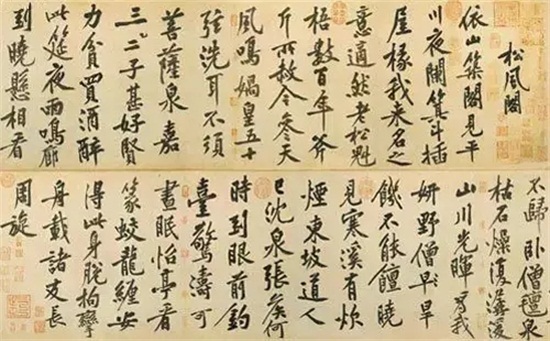 松風閣
依山築閣見平
川夜闌箕斗插
屋椽我來名之
意適然老松魁
梧數百年斧
斤所赦今參天
風鳴媧皇五十
弦洗耳不須
菩薩泉嘉
三二子甚好賢
力貧買酒醉
此筵夜雨鳴廊
到曉懸相看
不歸臥僧氈泉
枯石燥復潺湲
山川光暉為我
妍野僧早旱
饑不能饘曉
見寒溪有炊
煙東坡道人
已沈泉張侯何
時到眼前釣
臺驚濤可
晝眠怡亭看
篆蛟龍纏安
得此身脫拘攣
舟載諸友長
周旋